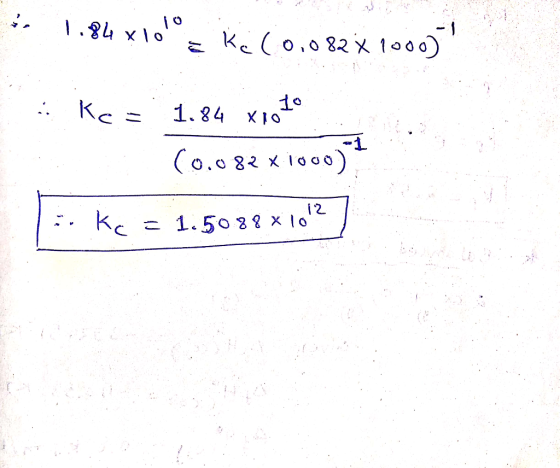 ∴ 1.84 × 10^10 = Kc (0.082 × 1000)^-1
∴ Kc = 1.84 × 10^10 / (0.082 × 1000)^-1
∴ Kc = 1.5088 × 10^12